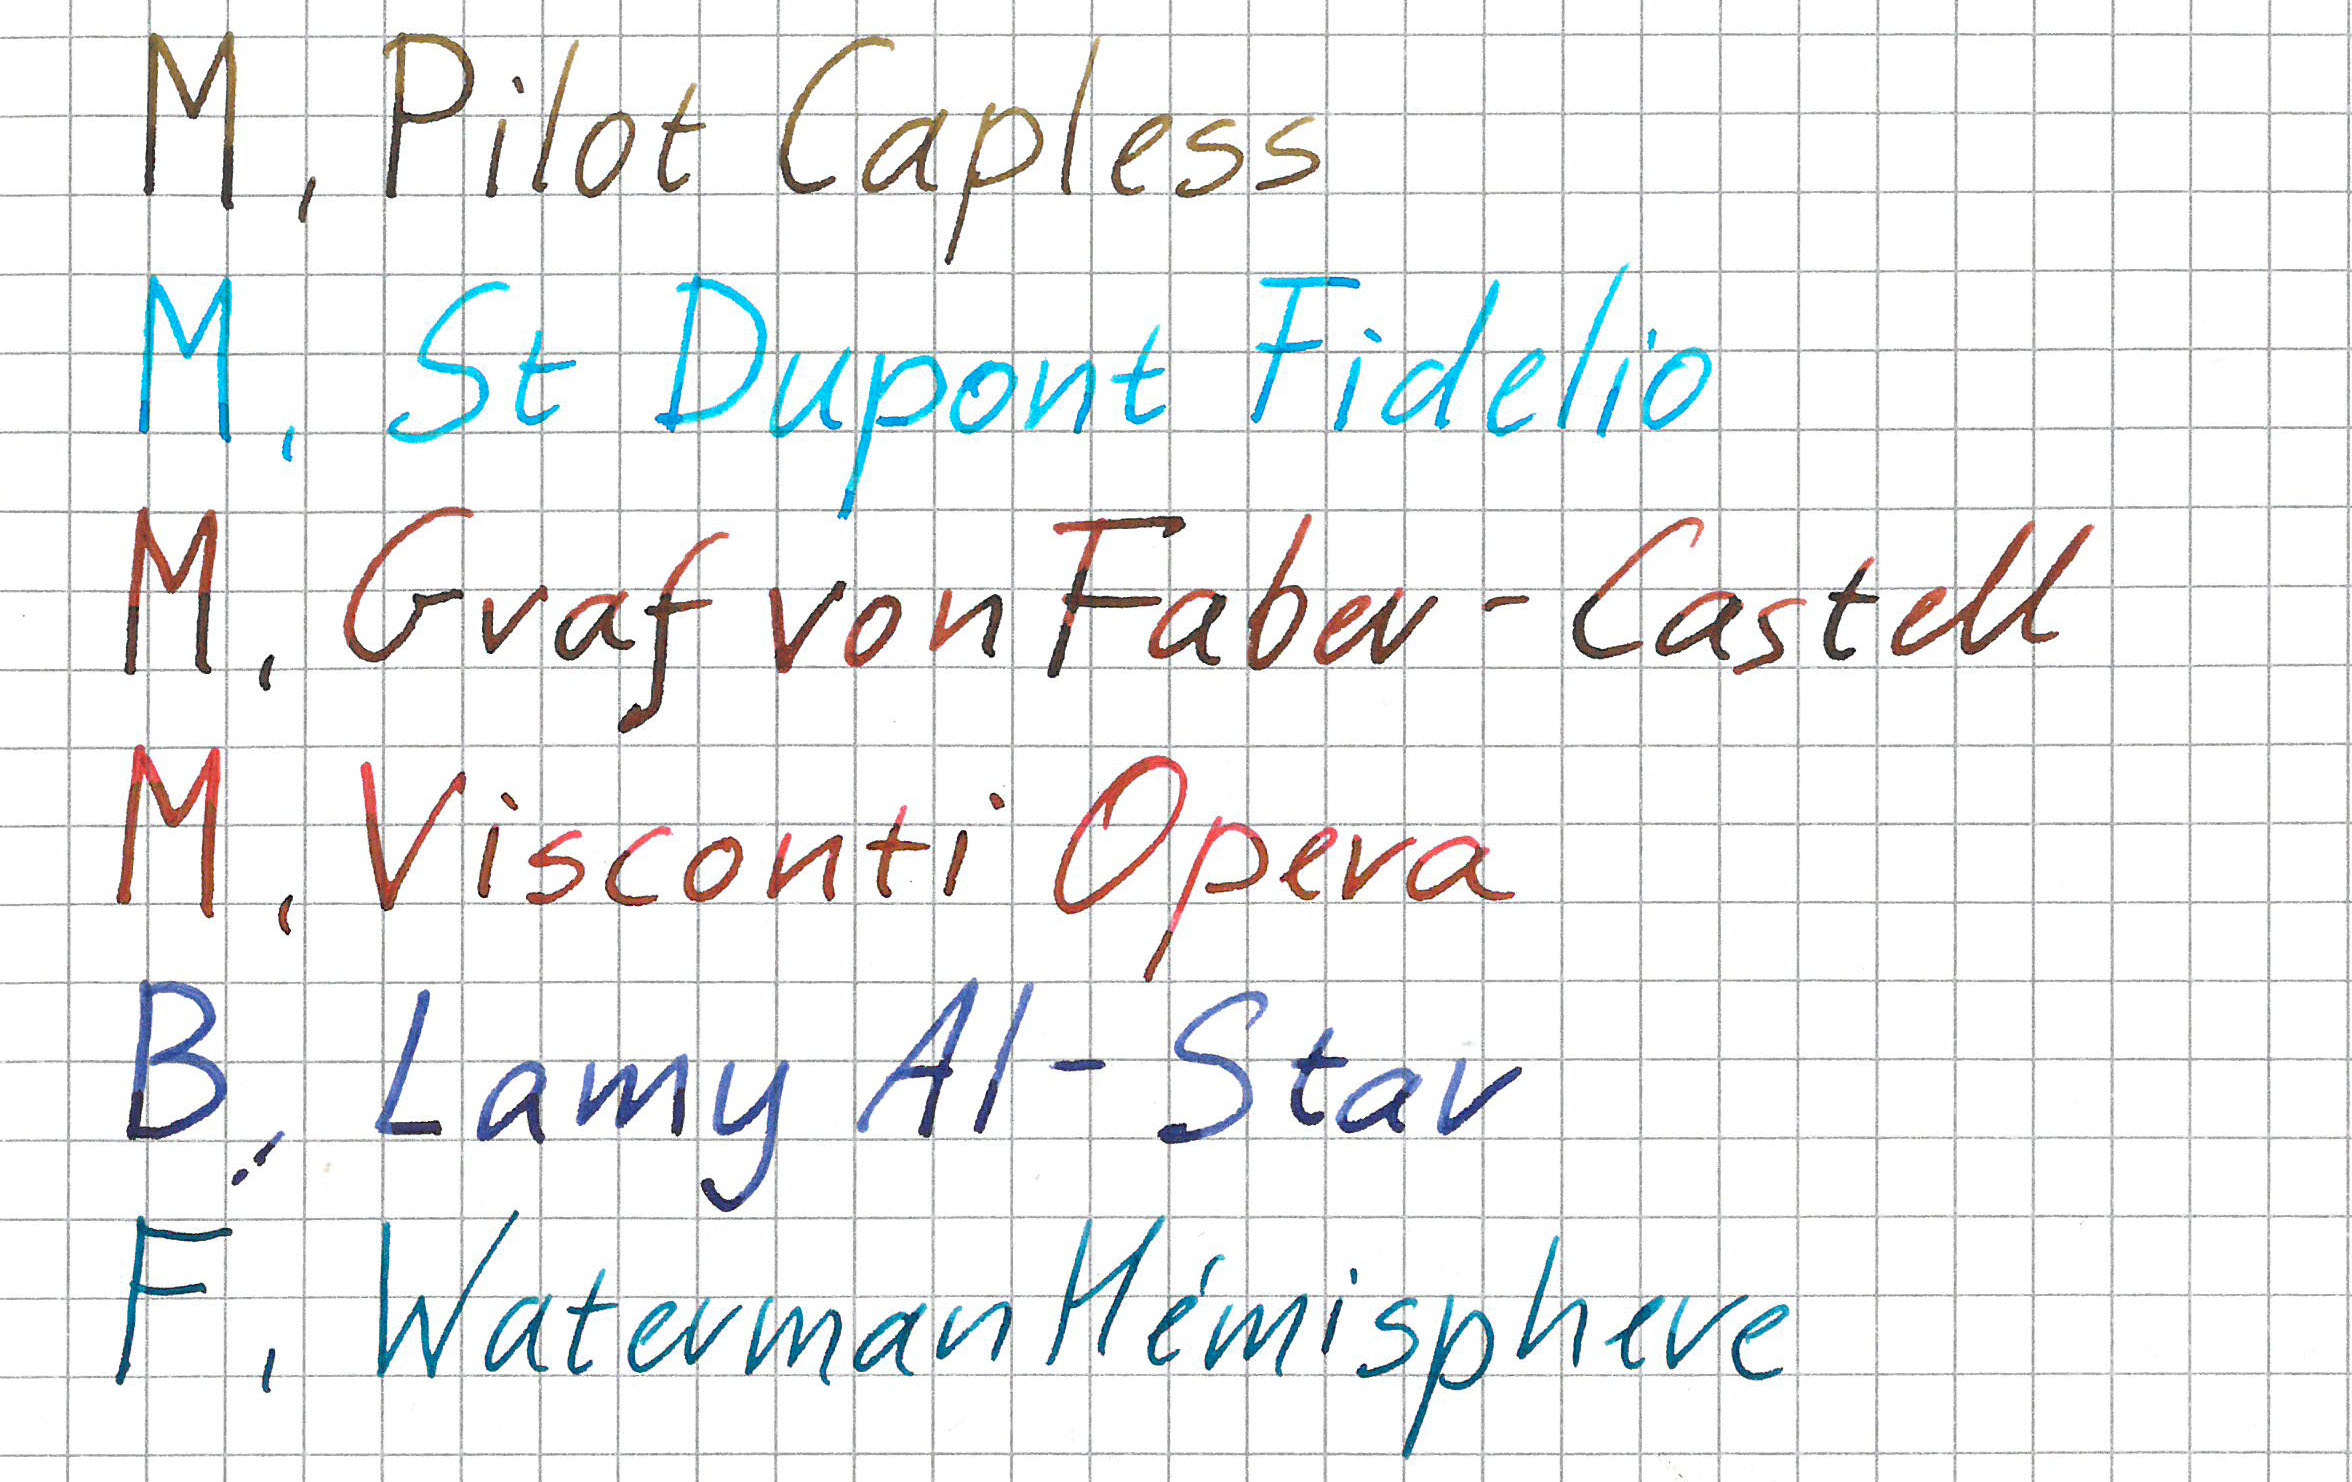 M, Pilot Capless
M, St Dupont Fidelio
M, Graf von Faber-Castell
M, Visconti Opera
B, Lamy Al-Star
F, Waterman Hémisphere